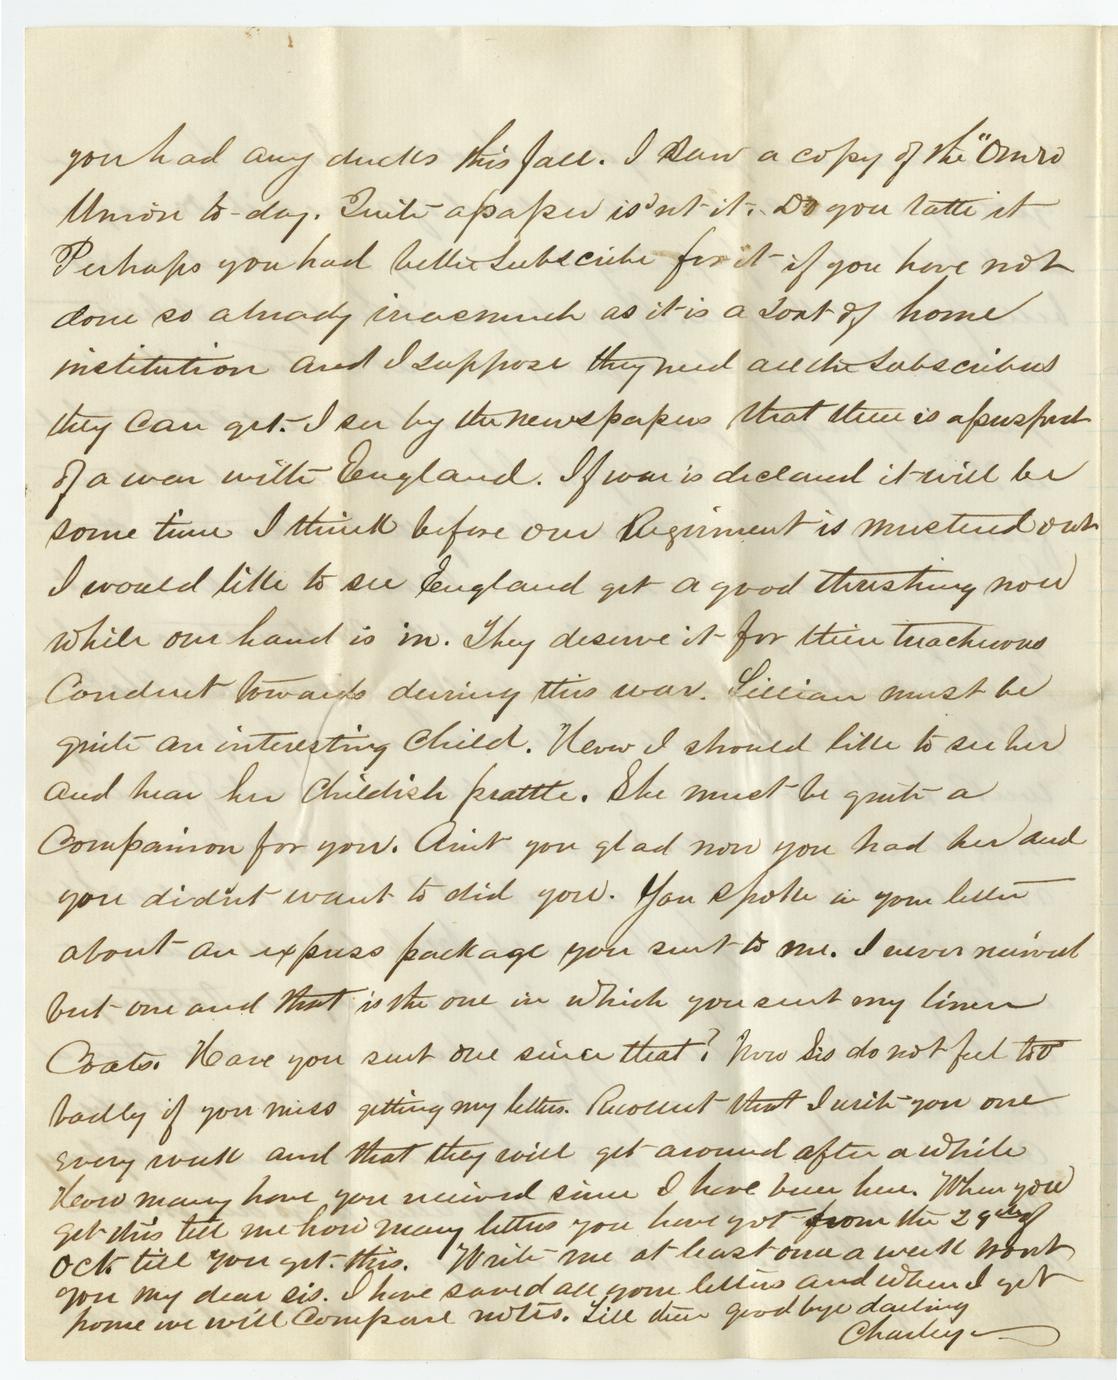 you had any ducks this fall. I saw a copy of the "Omro
Union to-day. Quite a paper is'nt it. Do you take it
Perhaps you had better subscribe for it if you have not
done so already inasmuch as it is a sort of home
institution and I suppose they need all the subscribers
they can get. I see by the newspapers that there is a prospect
of a war with England. If war is declared it will be
some time I think before our Regiment is mustered out
I would like to see England get a good thrashing now
while our hand is in. They deserve it for their treacherous
Conduct towards during this war. Lillian must be
quite an interesting Child. How I should like to see her
and hear her Childish prattle. She must be quite a
Companion for you. Aint you glad now you had her and
you did'nt want to did you. You spoke in your letter
about an express package you sent to me. I never received
but one and that is the one in which you sent my linen
Coats. Have you sent one since that? Now Sis do not feel too
badly if you miss getting my letters. Recollect that I write you one
every week and that they will get around after a while
How many have you received since I have been here. When you
get this tell me how many letters you have got from the 29th of
Oct. till you get this. Write me at least once a week wont
you my dear sis. I have saved all your letters and when I get
home we will Compare notes. Till then good bye darling
Charley